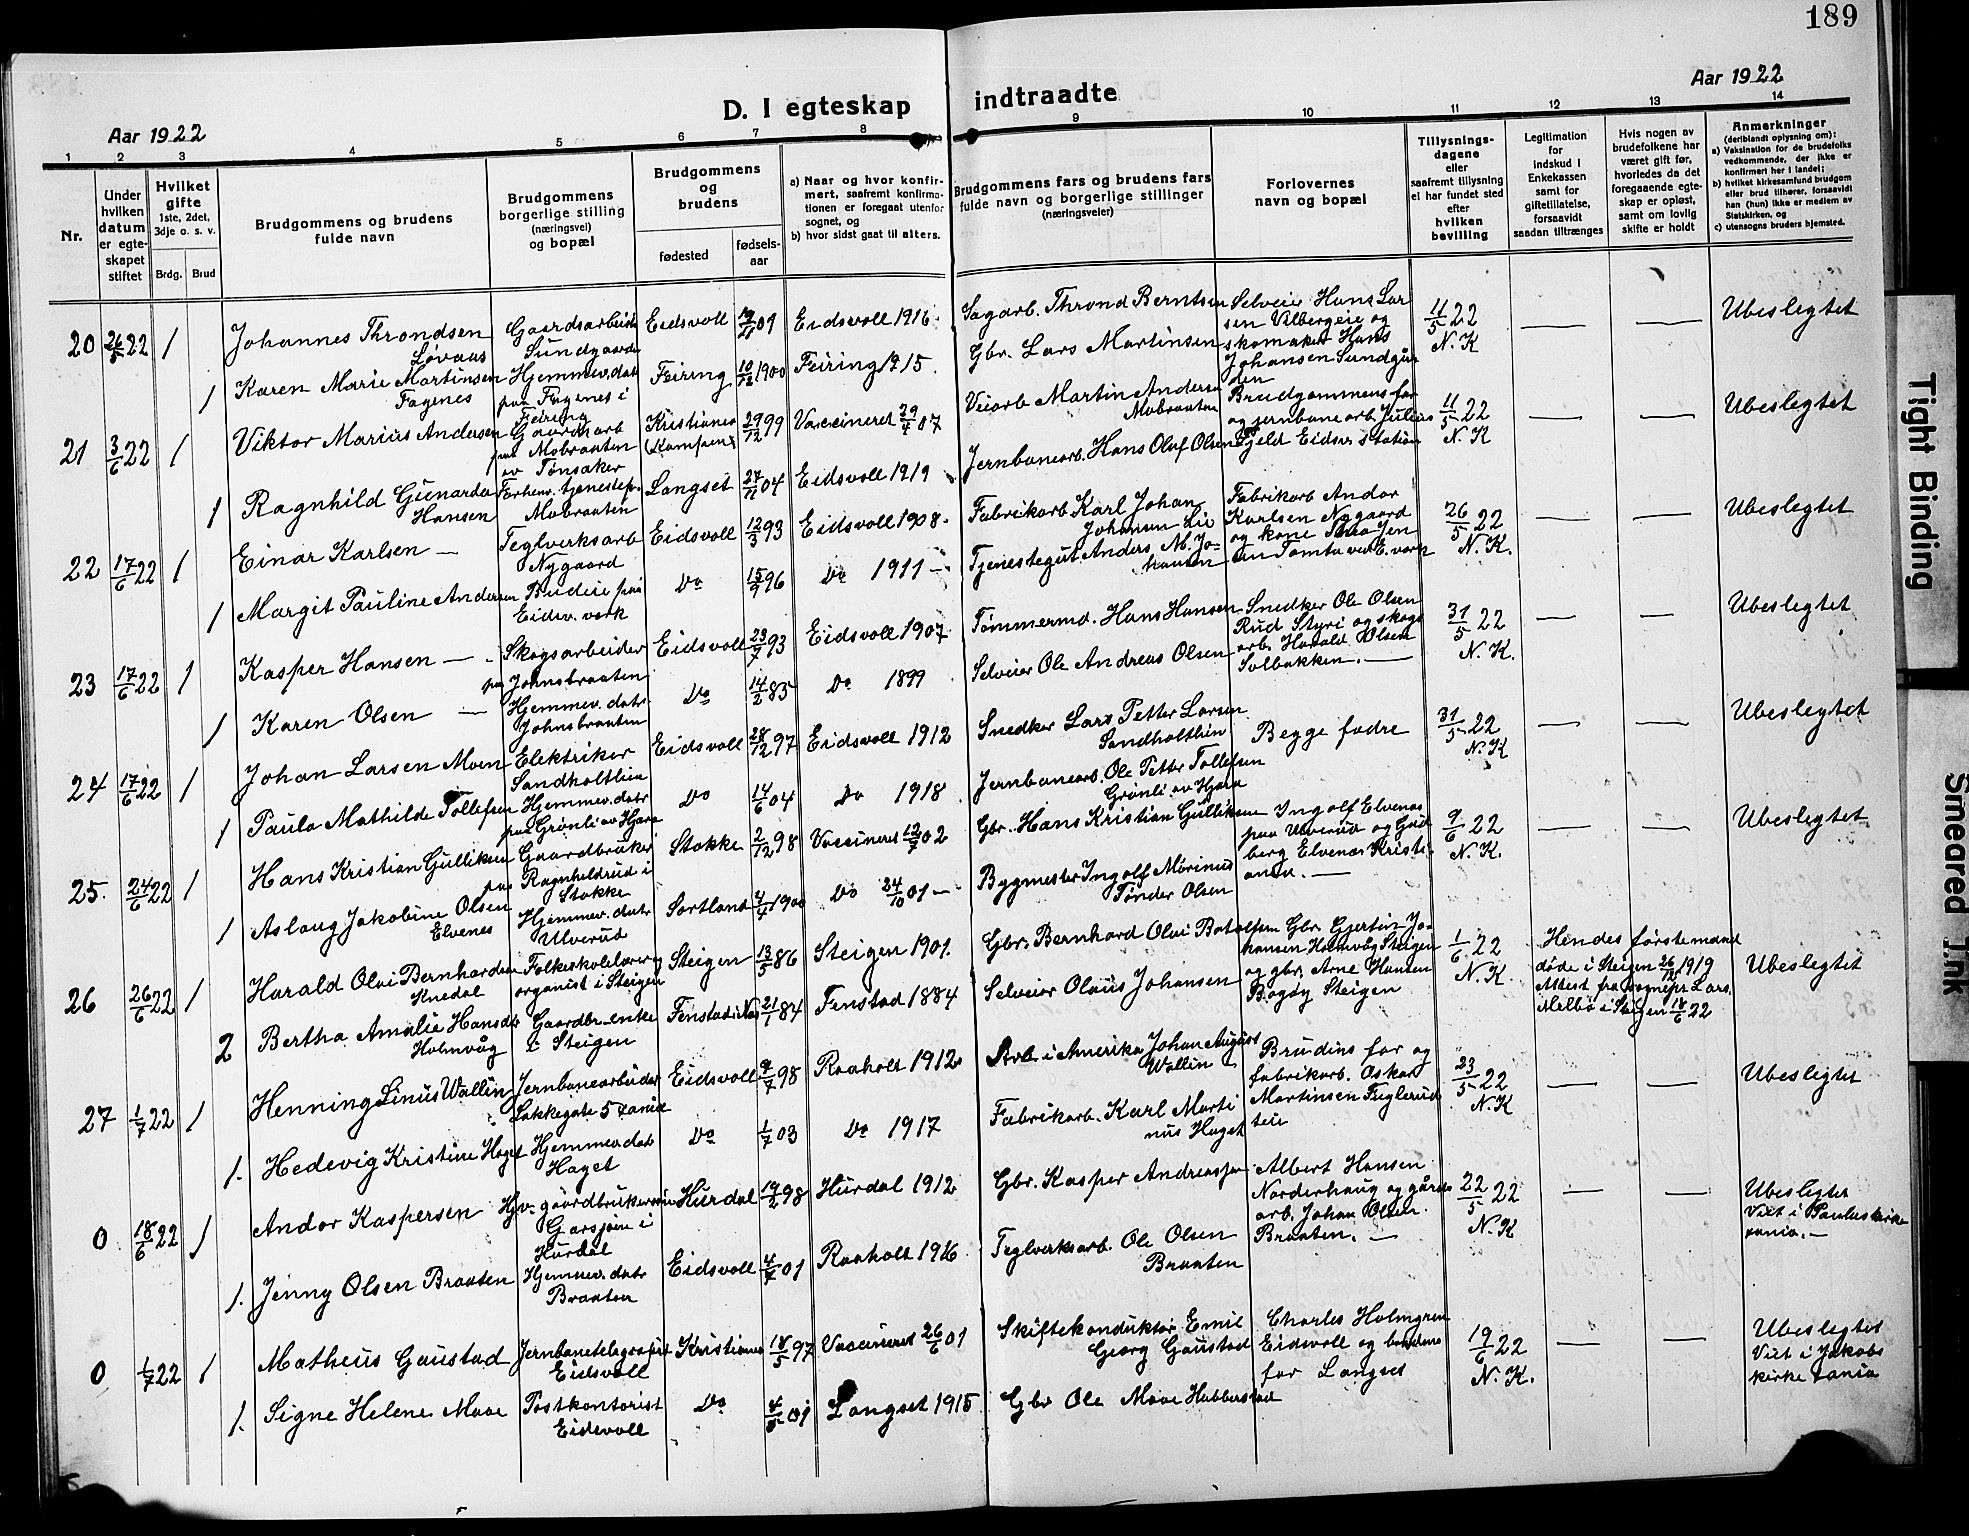 189
Aar 1922
D. I egteskap
indtraadte
Aar 1922
1 2 3 4 5 6 7 8 9 10 11 12 13 14
Nr.
Under hvilken datum er egteskapet stiftet
Hvilket gifte 1ste, 2det, 3dje o. s. v.
Brdg. Brud
Brudgommens og brudens fulde navn
Brudgommens borgerlige stilling (næringsvei) og bopæl
Brudgommens og brudens
fødested
fødselsaar
a) Naar og hvor konfirmert, saafremt konfirmationen er foregaat utenfor sognet, og
b) hvor sidst gaat til alters.
Brudgommens fars og brudens fars fulde navn og borgerlige stillinger (næringsveier)
Forlovernes navn og bopæl
Tillysningsdagene eller saafremt tillysning ei har fundet sted efter hvilken bevilling
Legitimation for indskud i Enkekassen samt for giftetillatelse, forsaavidt saadan tiltrænges
Hvis nogen av brudefolkene har været gift før, hvorledes da det foregaaende egteskap er opløst, samt om lovlig skifte er holdt
Anmerkninger (deriblandt oplysning om):
a) Vaksination for de brudefolks vedkommende, der ikke er konfirmert her i landet;
b) hvilket kirkesamfund brudgom eller brud tilhører, forsaavidt han (hun) ikke er medlem av Statskirken, og
c) utensogns bruders hjemsted.
20 26/5 22 1 Johannes Throndsen Løvaas Gaardsarbeid. Sundgaarden Eidsvoll 01 Eidsvoll 1916. Sagarb. Thrond Berntsen Selveier Hans Larsen Vilbergeie og skomaker Hans Johansen Sundgaarden 11/5 22 N. K — — Ubeslegtet
1 Karen Marie Martinsen Fagenes Hjemmev. dat. paa Fagenes i Feiring Feiring 10/12 1900 Feiring 1915. Gbr. Lars Martinsen
21 3/6 22 1 Viktor Marius Andersen Gaardsarb paa Mobraaten av Tønsaker Kristiania (Kampen) 29/12 99 Vaccineret 29/4 07 Veiarb Martin Andersen Mobraaten Brudgommens far og jernbanearb. Julius Fjeld Eidsv. station 11/5 22 N. K — — Ubeslegtet
1 Ragnhild Gunarda Hansen Forhenv. tjenestep. Mobraaten Langset 27/11 04 Eidsvoll 1919 Jernbanearb. Hans Olaf Olsen
22 17/6 22 1 Einar Karlsen — Teglverksarb Nygaard Eidsvoll 12/3 93 Eidsvoll 1908. Fabrikarb. Karl Johan Johansen Lie Fabrikarb Andor Karlsen Nygaard og kone Thea Jensen Tomta ved E. værk 26/5 22 N. K. — — Ubeslegtet
1 Margit Pauline Andersen Budeie paa Eidsv. verk Do 15/9 96 Do 1911 — Tjenestegut Anders M. Johansen
23 17/6 22 1 Kasper Hansen — Skogsarbeider paa Johnsbraaten Eidsvoll 23/7 93 Eidsvoll 1907. Tømmermd. Hans Hansen Snedker Ole Olsen Rud Styri og skogsarb. Harald Olsen Solbakken. — 31/5 22 N. K. — — Ubeslegtet
1 Karen Olsen — Hjemmev. datr Johnsbraaten Do 14/2 85 Do 1899 Selveier Ole Andreas Olsen
24 17/6 22 1 Johan Larsen Moen Elektriker Sandholtlien Eidsvoll 28/12 97 Eidsvoll 1912 Snedker Lars Petter Larsen Sandholtlien Begge fædre 31/5 22 N. K — — Ubeslegtet
1 Paula Mathilde Tollefsen Hjemmev. datr paa Grønli av Hjera Do 14/6 04 Do 1918. Jernbanearb. Ole Petter Tollefsen Grønli av Hjera
25. 24/6 22 1 Hans Kristian Gulliksen Gaardbruker paa Ragnhildrud i Stokke Stokke 2/12 98 Vaccineret 12/7 02 Gbr. Hans Kristian Gulliksen Ingolf Elvenes paa Ulverud og Gudberg Elvenes Kristiania. — 9/6 22 N. K. — — Ubeslegtet
1 Aslaug Jakobine Olsen Elvenes Hjemmev. datr Ulverud Sortland 4/4 1900 Do 24/10 01 — Bygmester Ingolf Mørinus Tønder Olsen
26 26/6 22 1 Harald Olvi Bernhardsen Knedal Folkeskolelærer og organist i Steigen Steigen 13/5 86 Steigen 1901. Gbr. Bernhard Olvi Botolfsen Gbr. Gjertin Johansen Holmvåg Steigen og gbr. Arne Hansen Bogøy Steigen 1/6 22 N. K Hendes første mand døde i Steigen 26/12 1919 Attest fra sognepr. Lars Melbö i Steigen 18/6 22 Ubeslegtet
2 Bertha Amalie Hansdtr Holmvåg Gaardbr. enke i Steigen Fenstad i Nes 21/1 84 Fenstad 1884 Selveier Olaus Johansen
27 1/7 22 1 Henning Linus Wallin Jernbanearbeider Lakkegate 5 xania Eidsvoll 9/7 98 Raaholt 1912. Arb. i Amerika Johan August Wallin Brudens far og fabrikarb. Oskar Martinsen Fuglerudteie 23/5 22 N. K — — Ubeslegtet
1. Hedevig Kristine Haget Hjemmev. datr Haget Do 1/7 03 Do 1917 Fabrikarb. Karl Martinus Haget
0 18/6 22 1 Andor Kaspersen Hjv. gaardbrukersøn Garsjøen i Hurdal Hurdal 19/2 98 Hurdal 1912. Gbr. Kasper Andreassen Albert Hansen Norderhaug og gårdsarb. Johan Olsen Braaten. — 22/5 22 N. K — — Ubeslegtet Viet i Pauluskirke xania. —
1. Jenny Olsen Braaten Hjemmev. datr Braaten Eidsvoll 4/7 01 Raaholt 1916. Teglverksarb. Ole Olsen Braaten
0 1/7 22 1 Matheus Gaustad Jernbanetelegrafist Eidsvoll Kristiania 18/5 97 Vaccineret 26/6 01 Skiftekonduktør Emil Georg Gaustad Charles Holmgren Eidsvoll og brudens far Langset 19/6 22 N. K. — — Ubeslegtet Viet i Jakobs kirke xania
1. Signe Helene Moae Postkontorist Eidsvoll Do 4/5 01 Langset 1915 Gbr Ole Moae Habberstad
Tight Binding
Smeared Ink